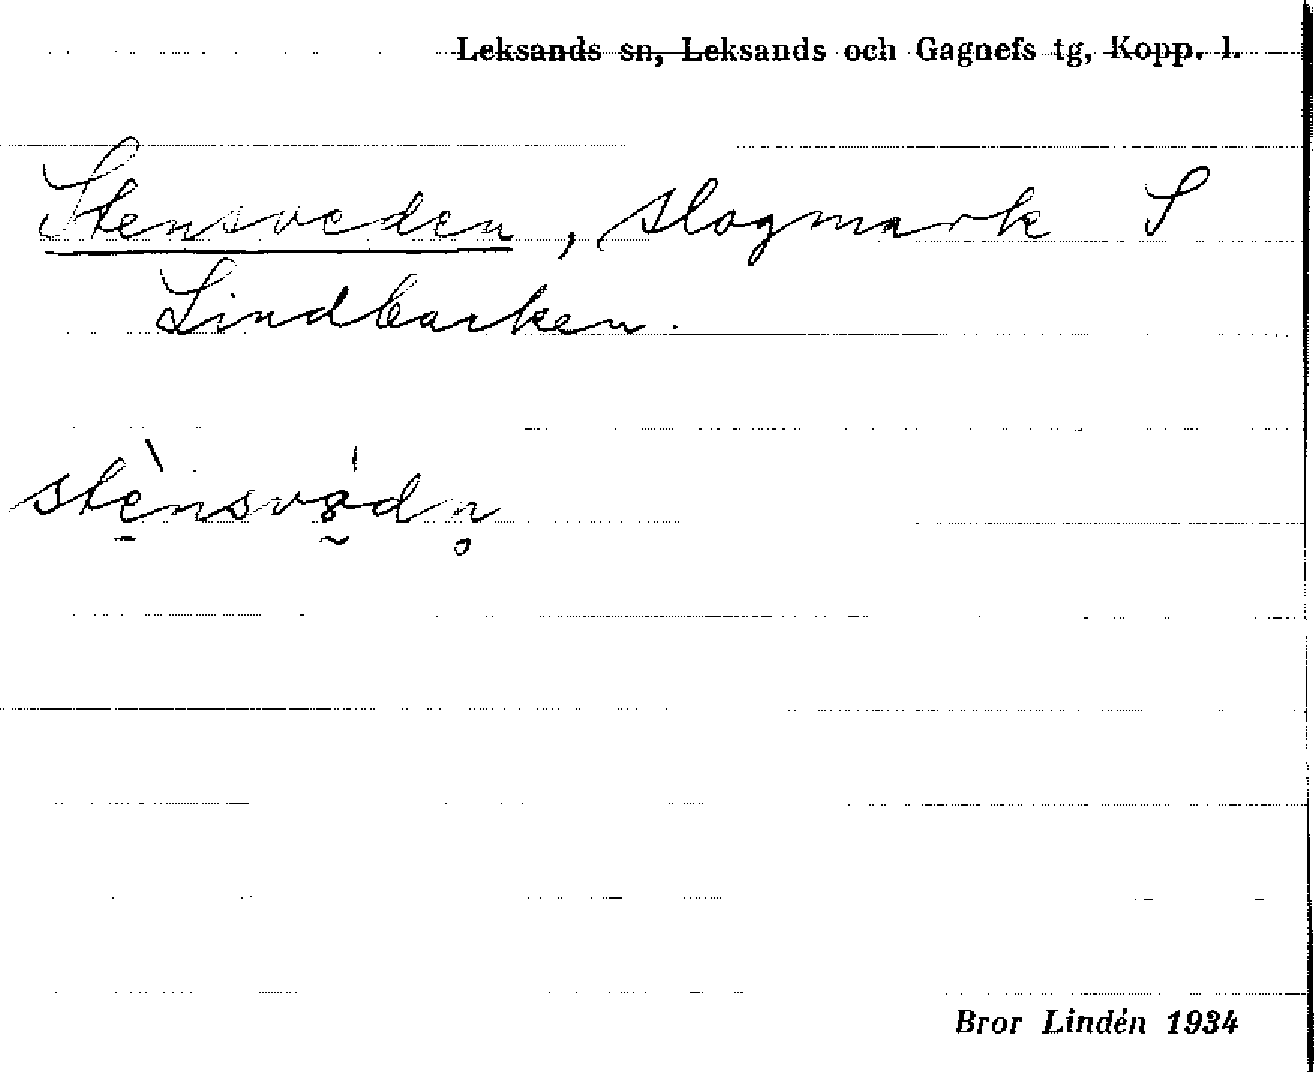 Leksands sn, Leksands och Gagnefs tg, Kopp. l.
Stensveden, slogmark S
Lindbacken.
Bror Lindén 1934